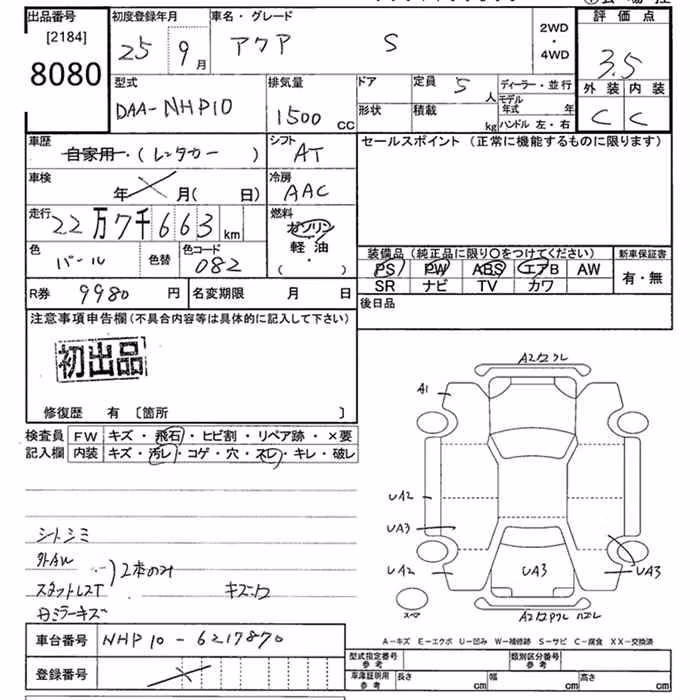 出品番号
[2184]
8080
初度登録年月
25 9月
車名・グレード
アクア S
2WD
・
4WD
評価点
3.5
外装 内装
C C
型式
DAA-NHP10
排気量
1500 CC
ドア
形状
定員 5 人
積載 kg
ディーラー・並行
モデル年式 年
ハンドル 左・右
車歴
自家用・(レンタカー )
シフト
AT
セールスポイント (正常に機能するものに限ります)
車検
年 月( 日)
冷房
AAC
走行
22万7千663 km
燃料
ガソリン
軽油
( ・ )
色
パール
色替
色コード
082
装備品 (純正品に限り○をつけてください)
PS PW ABS エアB AW
SR ナビ TV カワ
新車保証書
有・無
R券 9980 円
名変期限 月 日
後日品
注意事項申告欄(不具合内容等は具体的に記入して下さい)
初出品
修復歴 有 〔箇所 〕
検査員 FW キズ・飛石・ヒビ割・リペア跡・×要
記入欄 内装 キズ・汚レ・コゲ・穴・スレ・キレ・破レ
シートシミ
外AW
スタットレスT
2本のみ
キズ
ミラーキズ
A1
UA2
UA3
UA2
UA3
UA3
スペア
A-キズ E-エクボ U-凹み W-補修跡 S-サビ C-腐食 XX-交換済
車台番号 NHP10-6217870
登録番号
型式指定番号
参考
類別区分番号
参考
車庫証明用
参考
長さ cm
幅 cm
高さ cm